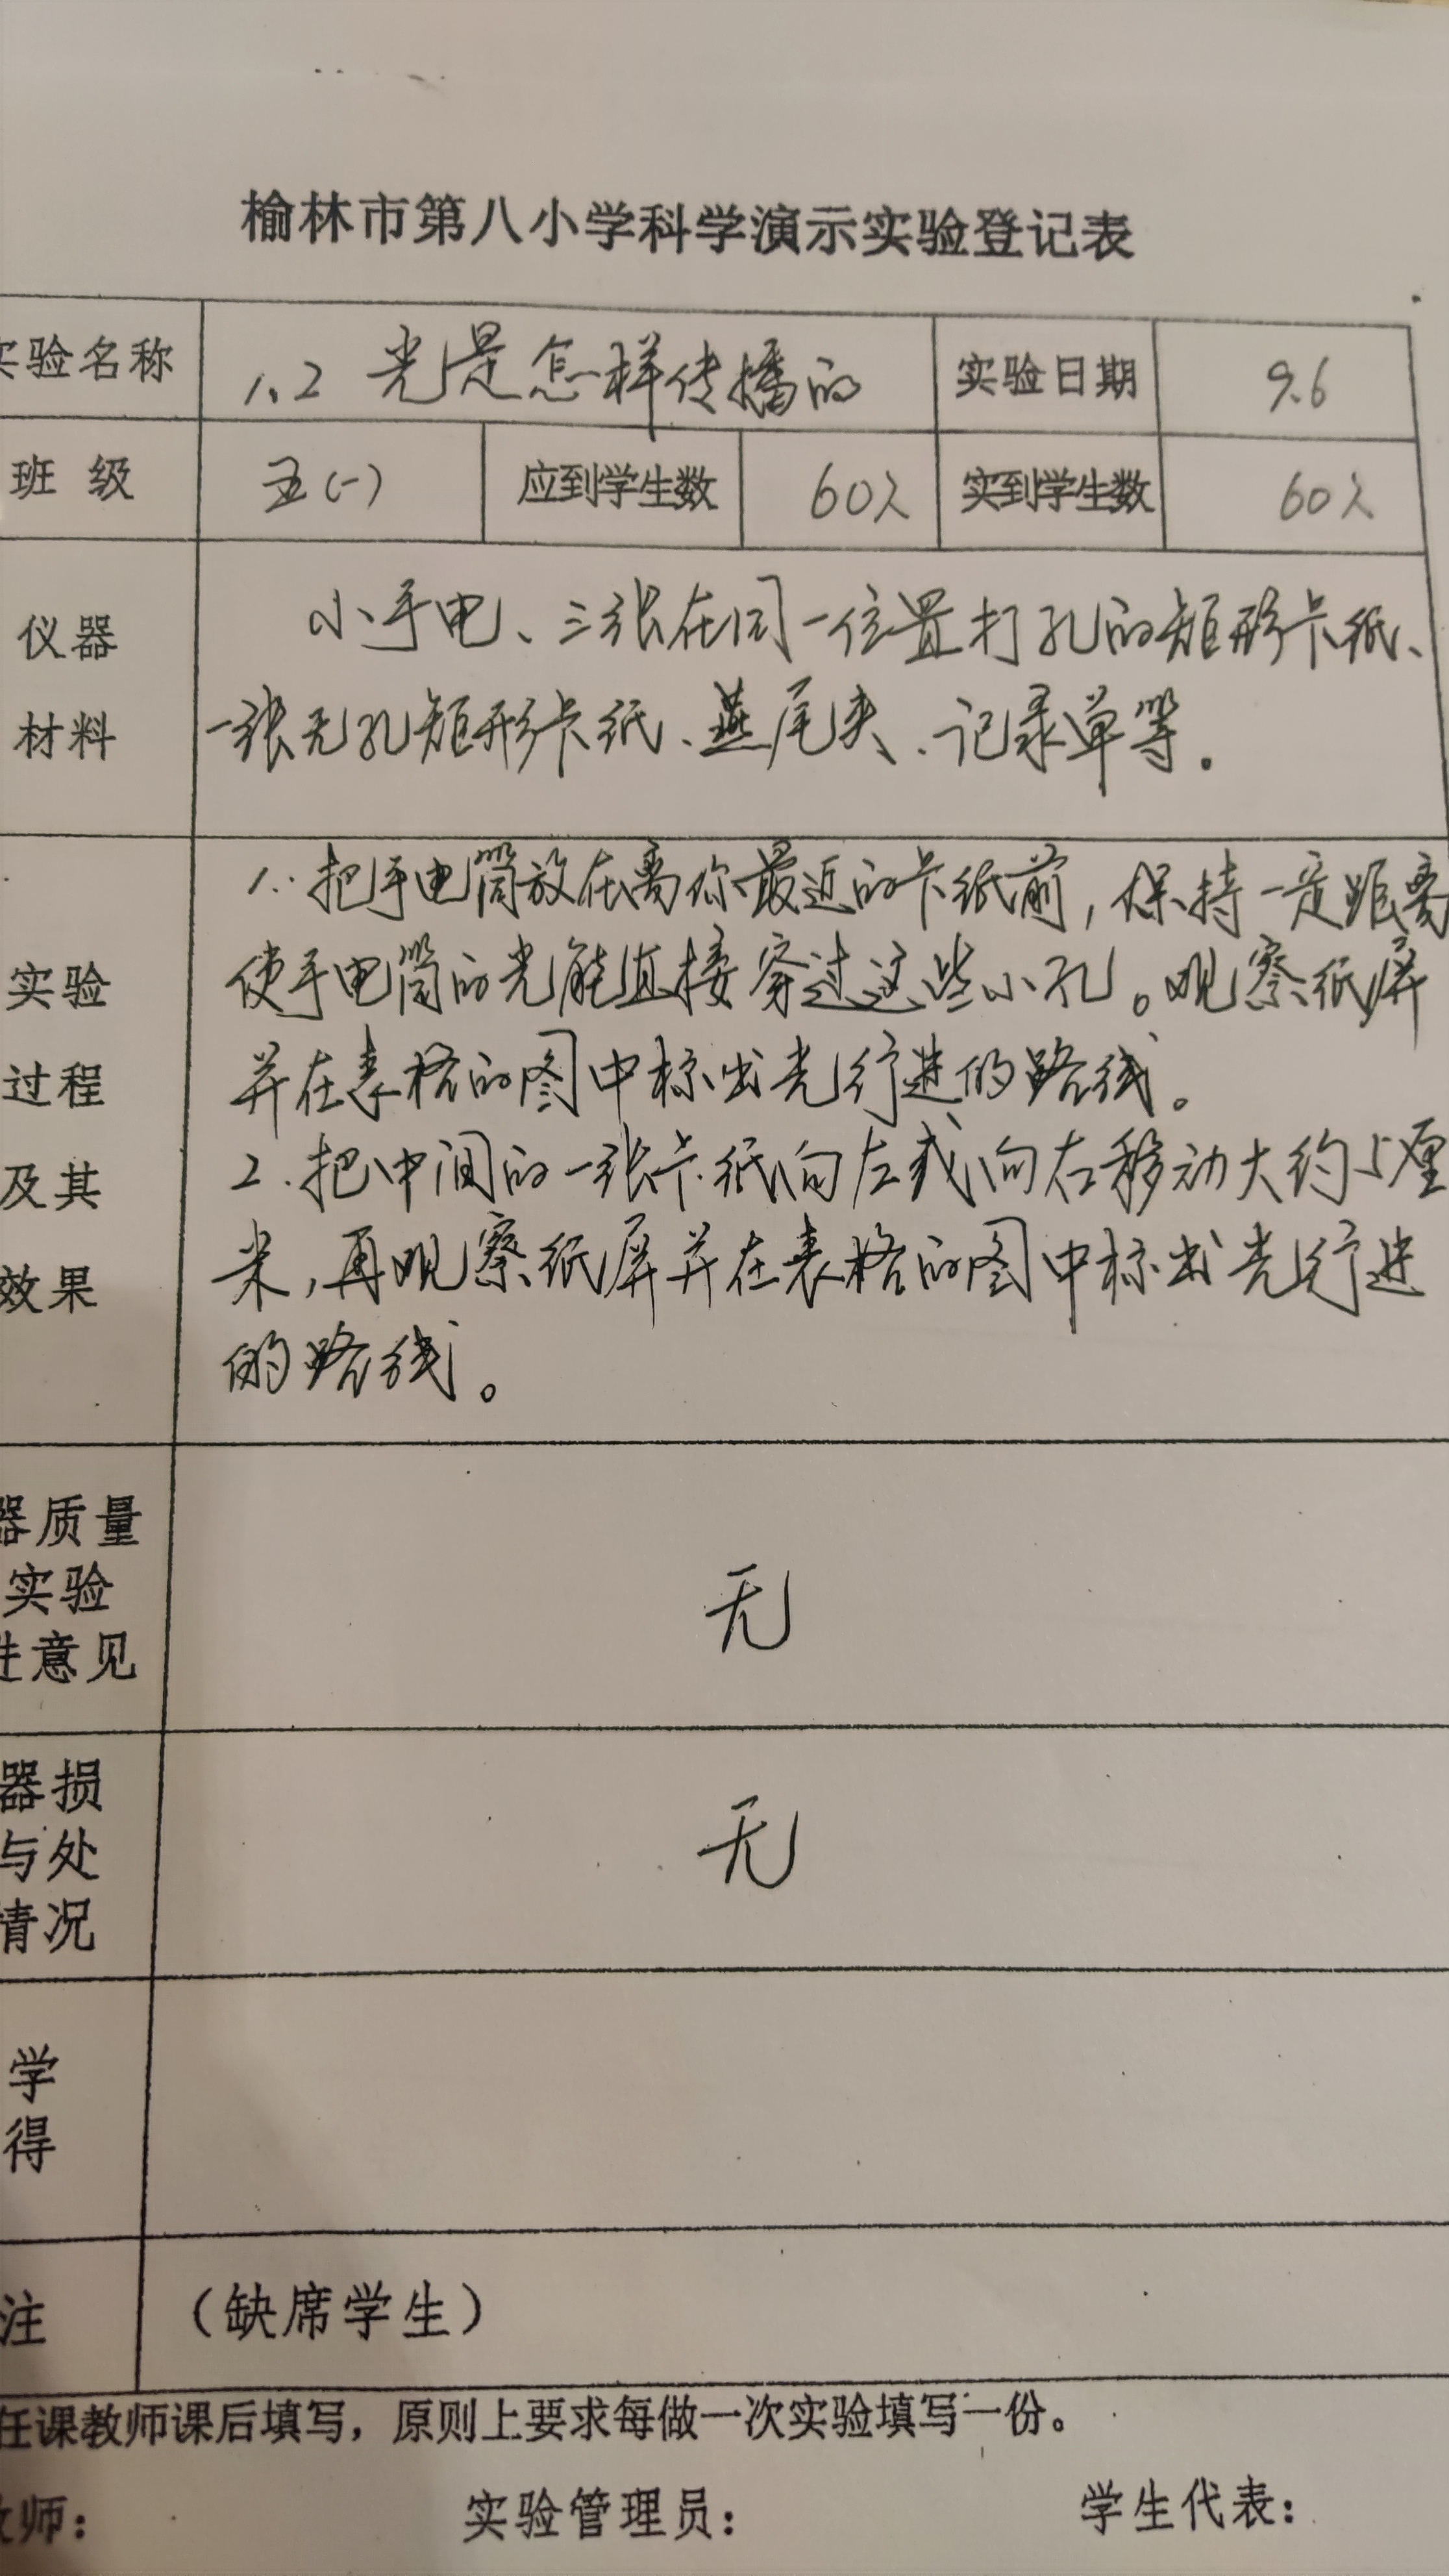 榆林市第八小学科学演示实验登记表
实验名称 1.2 光是怎样传播的 实验日期 9.6
班 级 五(一) 应到学生数 60人 实到学生数 60人
仪器
材料
小手电、三张在同一位置打孔的矩形卡纸、
一张无孔矩形卡纸、燕尾夹、记录单等.
实验
过程
及其
效果
1. 把手电筒放在离你最近的卡纸前,保持一定距离
使手电筒的光能直接穿过这些小孔。观察纸屏
并在表格的图中标出光行进的路线。
2.把中间的一张卡纸向左或向右移动大约5厘
米,再观察纸屏并在表格的图中标出光行进
的路线。
器质量
实验
进意见
无
器损
与处
情况
无
学
得
注 (缺席学生)
任课教师课后填写,原则上要求每做一次实验填写一份。
教师: 实验管理员: 学生代表: